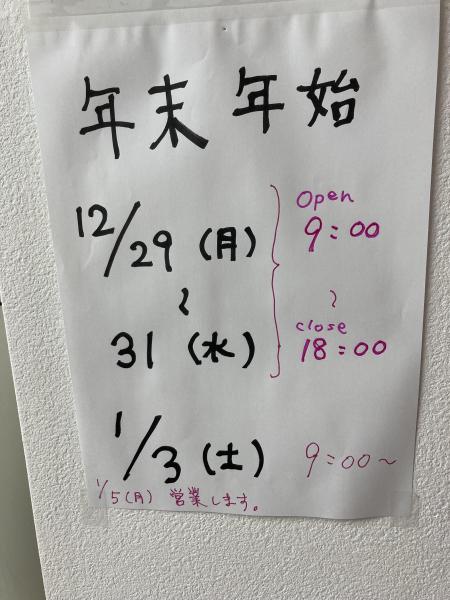 年末年始
12/29 (月)
Open
9:00
〜
〜
31 (水)
close
18:00
1/3 (土)
9:00〜
1/5(月) 営業します。